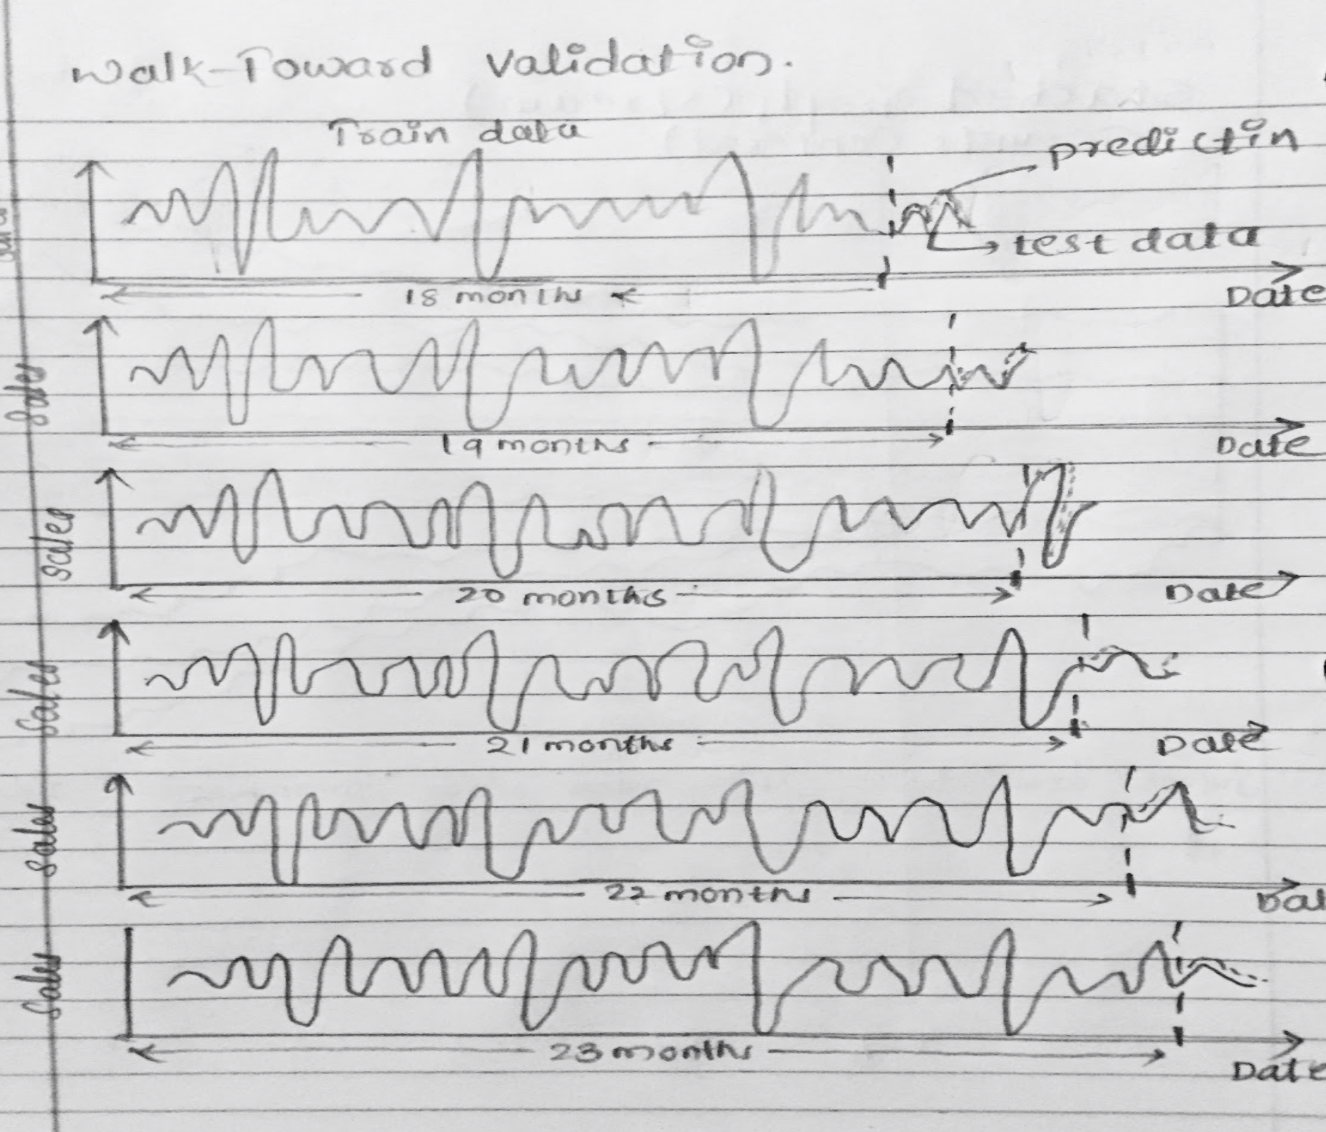 Walk-Toward Validation.
Train data
predictin
test data
18 months
Date
Sales
19 months
Date
Sales
20 months
Date
Sales
21 months
Date
Sales
22 months
Dat
Sales
23 months
Date